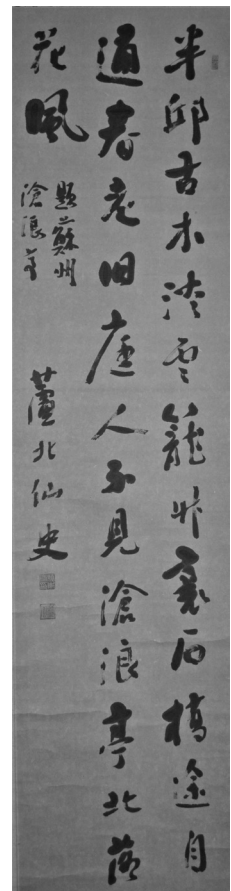 半邱古木淡雲籠竹裏石橋途自
通春老旧人不見滄浪亭北落
花風
題蘇州
滄浪亭
蘆北仙史